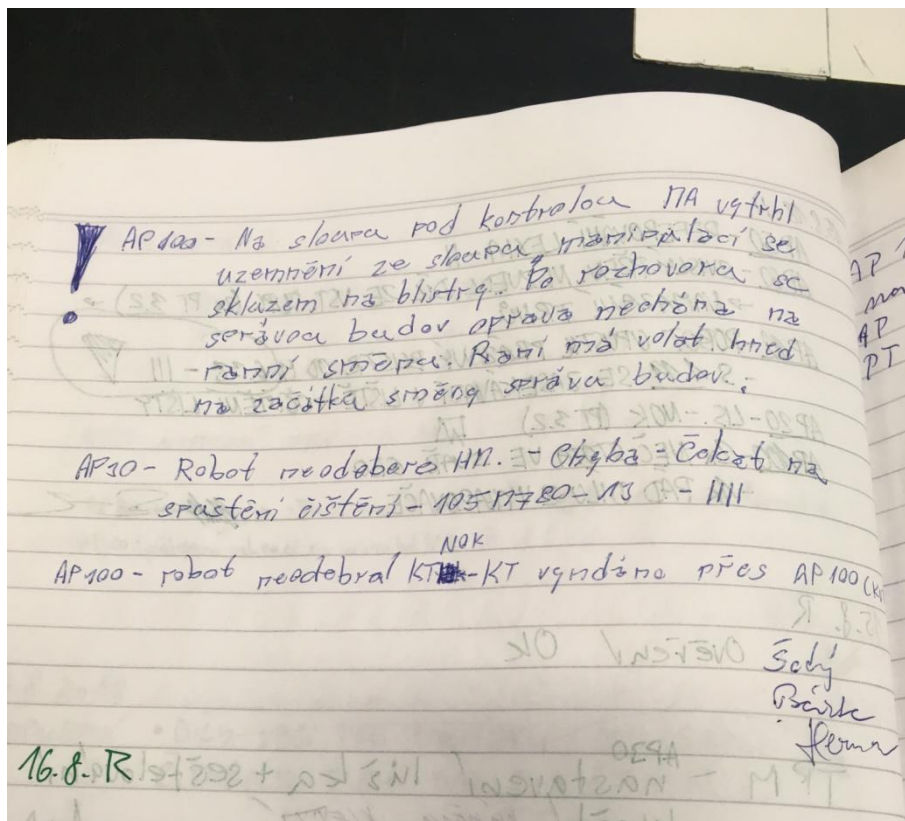 ! AP100 - Na sloupu pod kontrolou MA vytrhl
uzemnění ze sloupu manipulací se
sklazem na blistry. Po rozhovoru se
správou budov oprava nechána na
ranní směnu. Ranní má volat hned
na začátku směny správu budov.
AP30 - Robot neodebere HM. - Chyba = Čekat na
spuštění čištění - 105M780-13 - IIII
NOK
AP100 - robot neodebral KT - KT vyndáno přes AP100
Šedý
16.8. R